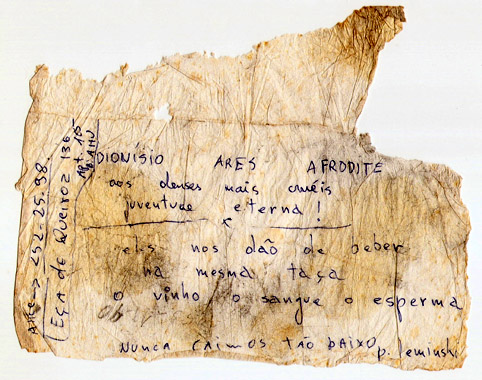 DIONÍSIO ARES AFRODITE
aos deuses mais cruéis
juventude eterna!
x
eles nos dão de beber
na mesma taça
o vinho o sangue o esperma
NUNCA CAIMOS TÃO BAIXO
p. leminski
Alice → 252-25.98.
(Eça de Queiroz 136
Apt. 15